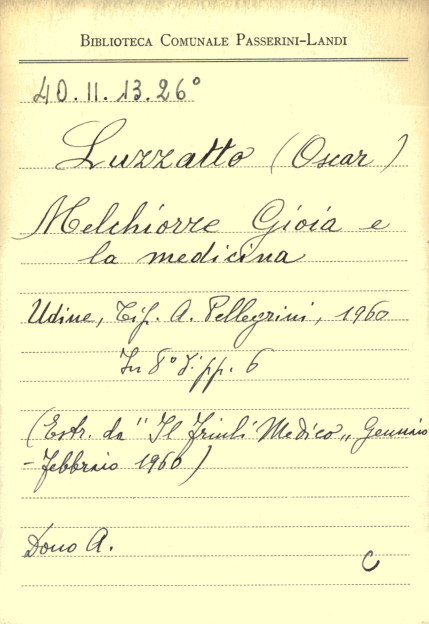 BIBLIOTECA COMUNALE PASSERINI-LANDI
40.II.13.26°
Luzzatto (Oscar)
Melchiorre Gioia e
la medicina
Udine, Tif. A. Pellegrini, 1960
In 8° di pp. 6
(Estr. da "Il Friuli Medico„ Gennaio
-Febbraio 1960)
Dono A.
C